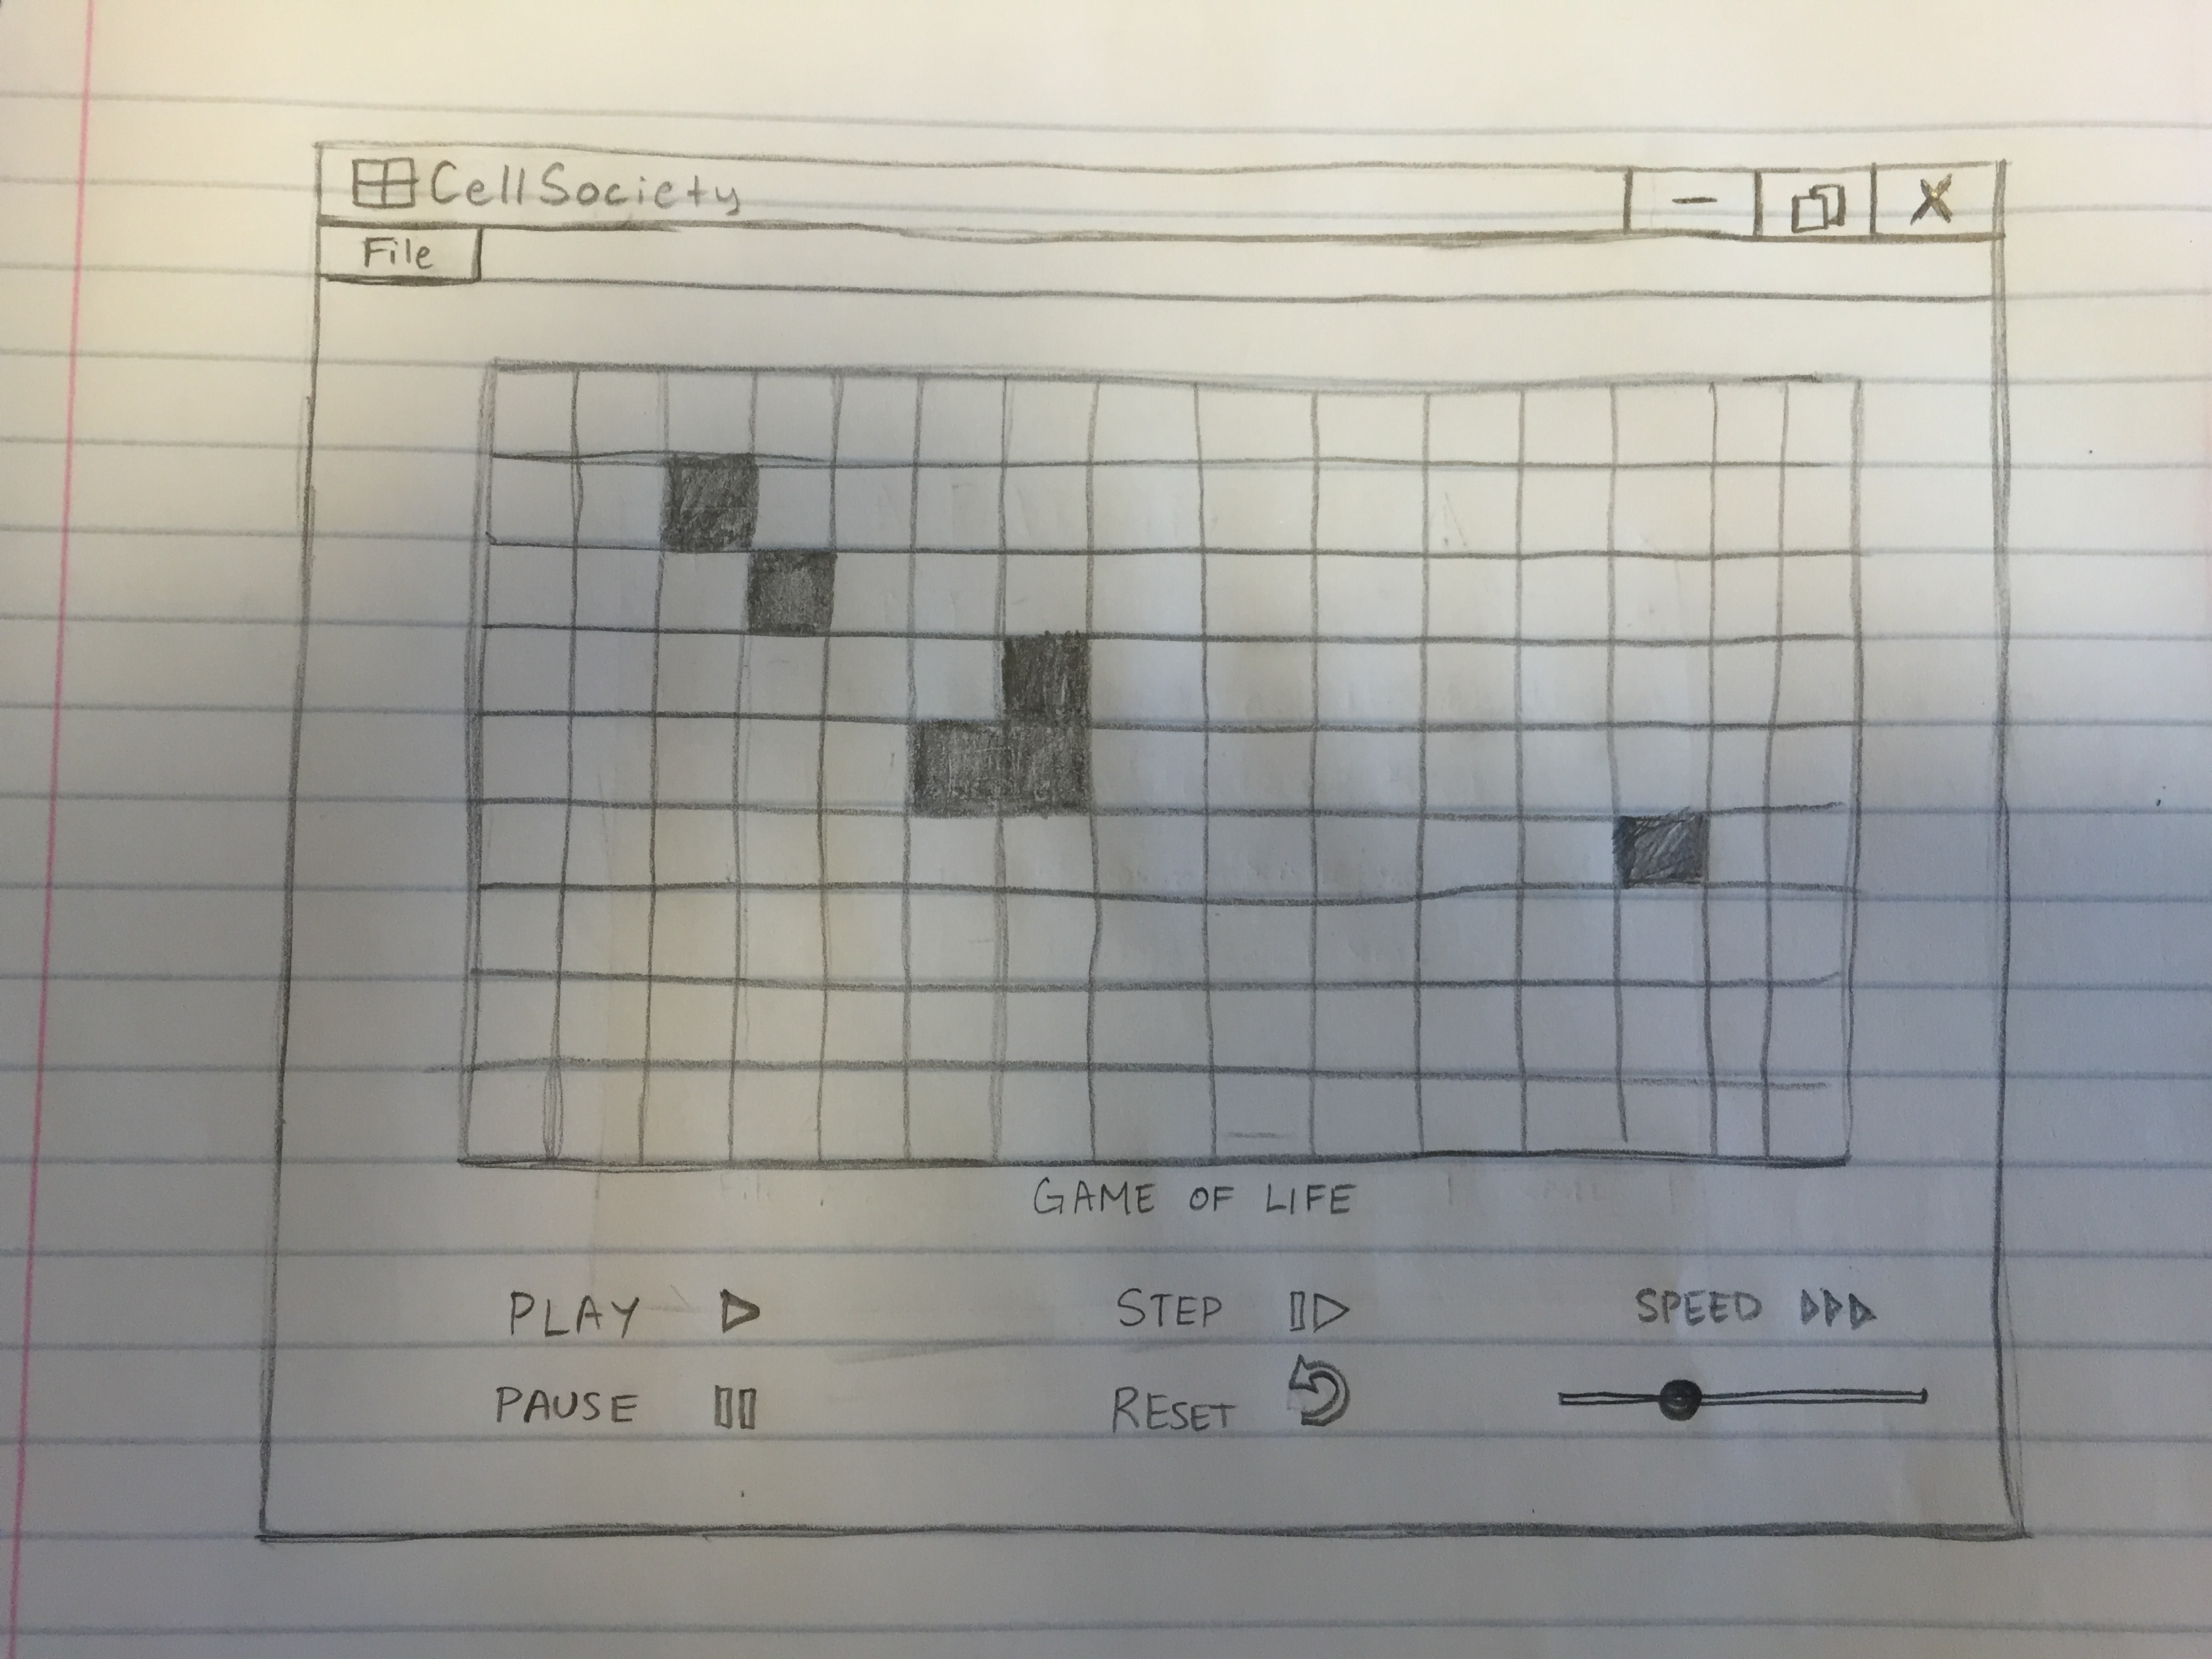 CellSociety
File
GAME OF LIFE
PLAY STEP SPEED
PAUSE RESET